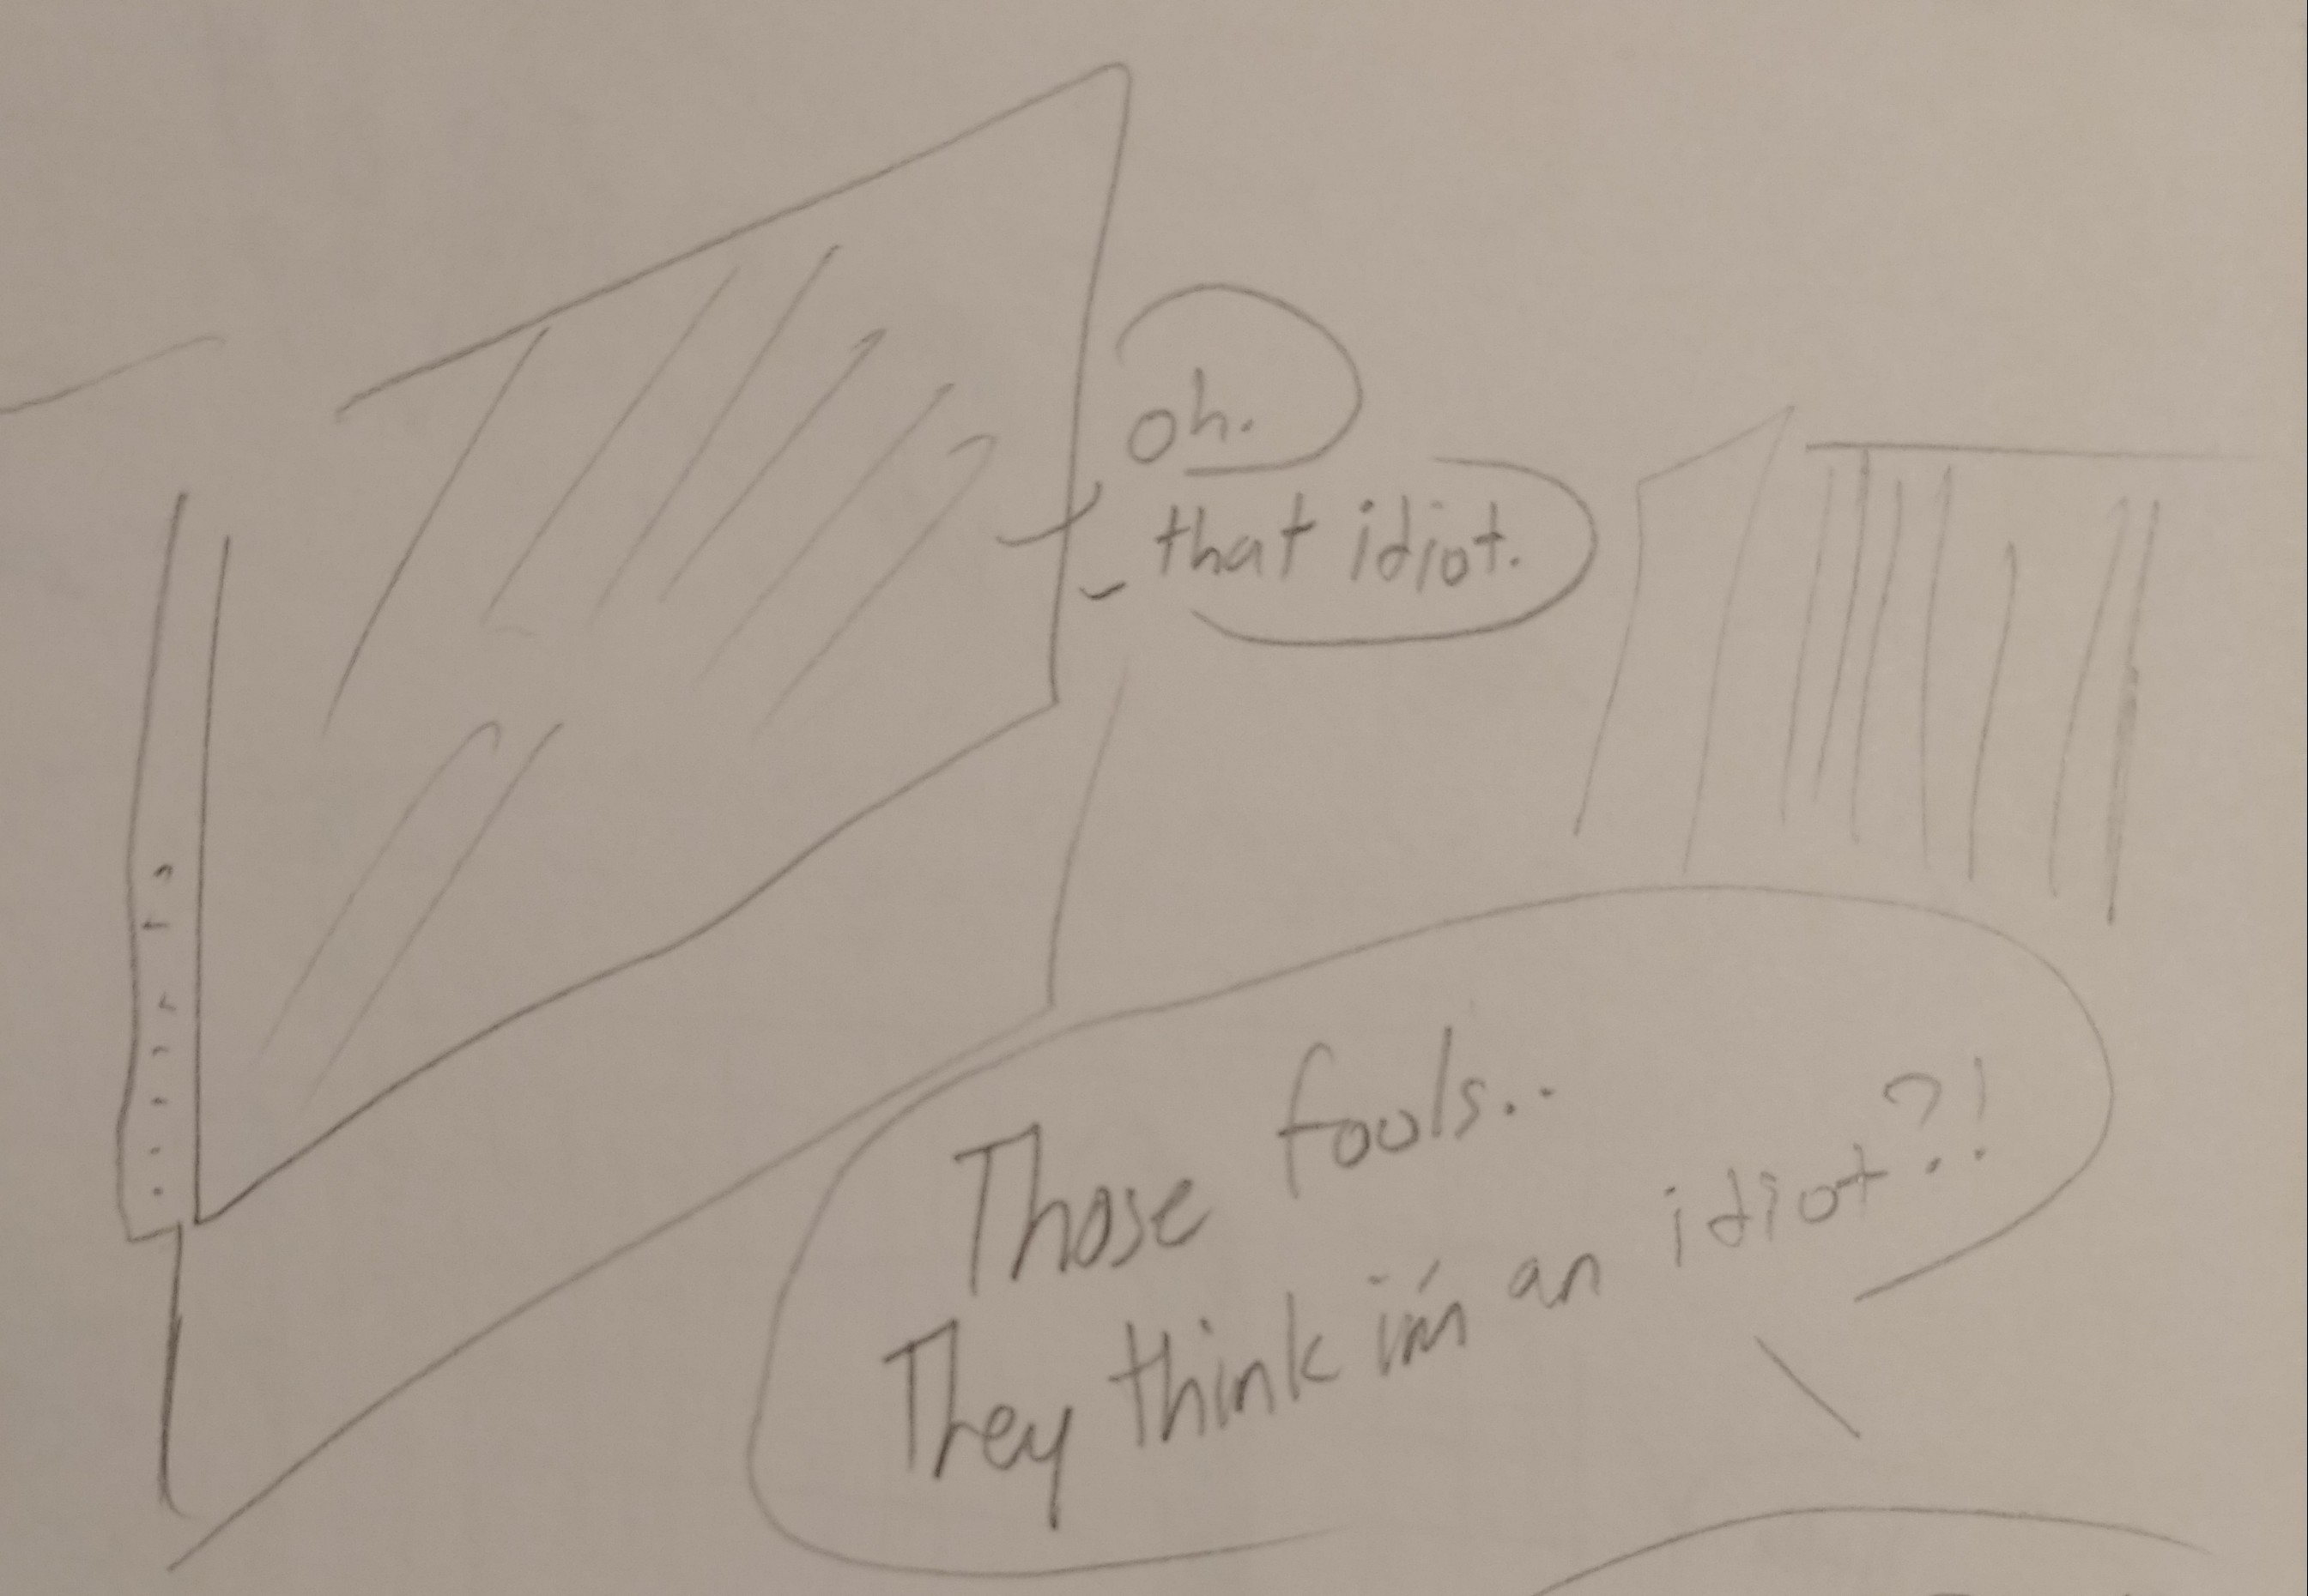 oh.
that idiot.
Those fools..
They think i'm an idiot?!